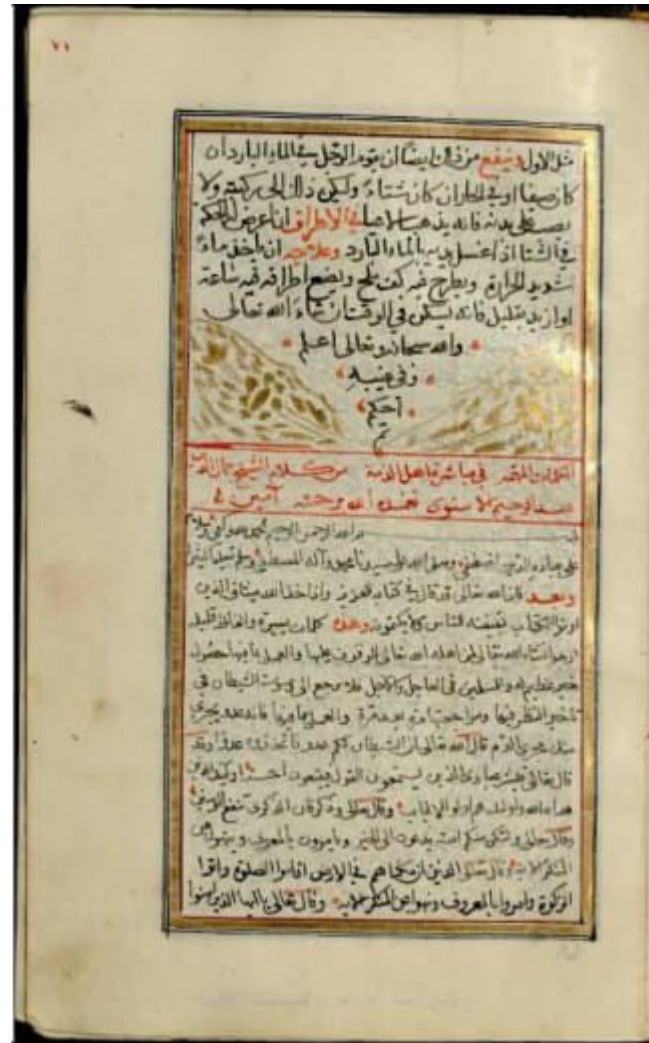 ٧١
مثل الاول وينفع من ذلك ايضا ان يقوم الرجل في الماء البارد ان
كان صيفا او في الحار ان كان شتاء وليكن ذلك الى ركبتيه ولا
يصب على بدنه فانه يذهب في الاطراف اذا عرض لحكة
في الشتا اذا غسل يديه بالماء البارد وعلاجه ان ياخذ ماء
شديد الحرارة ويطرح فيه كف ملح ويضع اطرافه فيه ساعة
او ازيد بقليل فانه يسكن في الوقت ان شاء الله تعالى
والله سبحانه وتعالى اعلم
وفي غيبه
احكم
تم
في مباشرة اهل الذمة من كلام الشيخ جمال الدين
عبد الرحيم الاسنوى تغمده الله برحمته آمين
الله الرحمن الرحيم
على عباده الذين اصطفى وصلى الله على سيدنا محمد وآله المصطفى وسلم تسليما
وبعد فان الله تعالى قد قال في كتابه العزيز واذ اخذ الله ميثاق الذين
اوتوا الكتاب لتبيننه للناس ولا يكتمونه وهذه كلمات يسيرة والفاظ قليلة
ارجو ان شاء الله تعالى لمن اهله الله تعالى الوقوف عليها والعمل بما فيها حصول
خير عظيم له وللمسلمين في العاجل والاجل فلا يرجع الى الشيطان في
تاخير النظر فيها مرة بعد مرة والعمل بما فيها فانه عدو يجري
منك مجرى الدم قال الله تعالى ان الشيطان لكم عدو فاتخذوه عدوا وقد
قال تعالى فبشر عبادى الذين يستمعون القول فيتبعون احسنه اولئك الذين
هداهم الله واولئك هم اولو الالباب وقال تعالى وذكر فان الذكرى تنفع المؤمنين
وقال تعالى ولتكن منكم امة يدعون الى الخير ويامرون بالمعروف وينهون عن
المنكر الاية وقال تعالى الذين ان مكناهم في الارض اقاموا الصلوة واتوا
الزكوة وامروا بالمعروف ونهوا عن المنكر الاية وقال تعالى يا ايها الذين امنوا